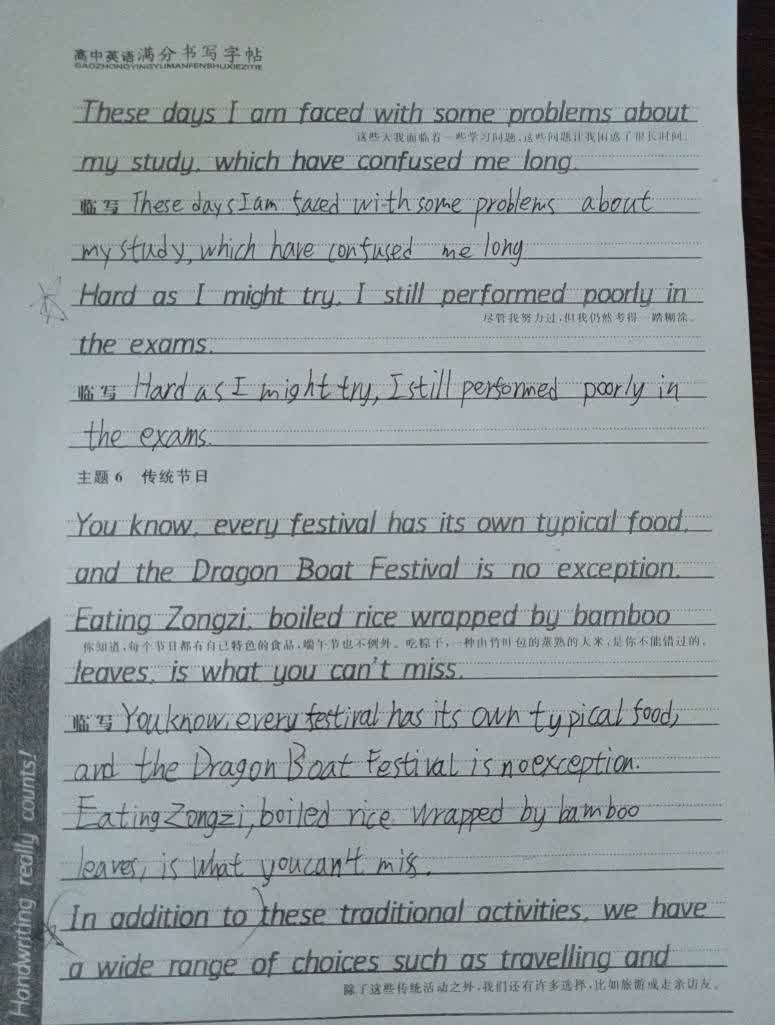 高中英语满分书写字帖
GAOZHONGYINGYUMANFENSHUXIEZITIE
These days I am faced with some problems about
这些天我面临着一些学习问题,这些问题让我困惑了很长时间。
my study, which have confused me long.
临写 These days I am faced with some problems about
my study, which have confused me long
Hard as I might try, I still performed poorly in
尽管我努力过,但我仍然考得一踏糊涂。
the exams.
临写 Hard as I might try, I still performed poorly in
the exams.
主题 6 传统节日
You know, every festival has its own typical food,
and the Dragon Boat Festival is no exception.
Eating Zongzi, boiled rice wrapped by bamboo
你知道,每个节日都有自己特色的食品,端午节也不例外。吃粽子,一种由竹叶包的蒸熟的大米,是你不能错过的。
leaves, is what you can't miss.
临写 You know, every festival has its own typical food,
and the Dragon Boat Festival is no exception.
Eating Zongzi, boiled rice wrapped by bamboo
leaves, is what you can't miss.
In addition to these traditional activities, we have
a wide range of choices such as travelling and
除了这些传统活动之外,我们还有许多选择,比如旅游或走亲访友。
Handwriting really counts!